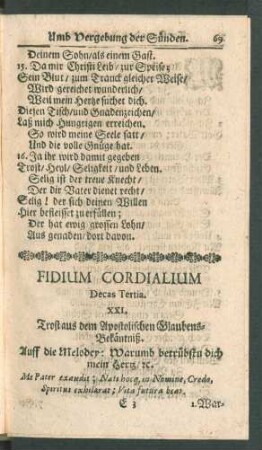 Umb Vergebung der Sünden. 69
Deinem Sohn/als einem Gast.
15. Da mir Christi Leib/ zur Speise:
Sein Blut/ zum Tranck gleicher Weise/
Wird gereichet wunderlich/
Weil mein Hertze suchet dich.
Diesen Tisch/und Gnadenzeichen/
Laß mich Hungrigen erreichen.
So wird meine Seele satt/
Und die volle Gnüge hat.
16. Ja ihr wird damit gegeben
Trost/Heyl/ Seligkeit/ und Leben.
Selig ist der treue Knecht/
Der die Vater dienet recht/
Selig! der sich deinen Willen
Hier befleisset zu erfüllen;
Der hat ewig grossen Lohn/
Aus genaden/ dort davon.
FIDIUM CORDIALIUM
Decas Tertia.
XXI.
Trost aus dem Apostolischen Glaubens-
Bekäntniß.
Auff die Melodey: Warumb betrübstu dich
mein Hertz/ ꝛc.
Me Pater exaudit; Nate hocq; in Nomine, Credo,
Spiritus exhilarat; Vita futura beat.
E 3 1. War-